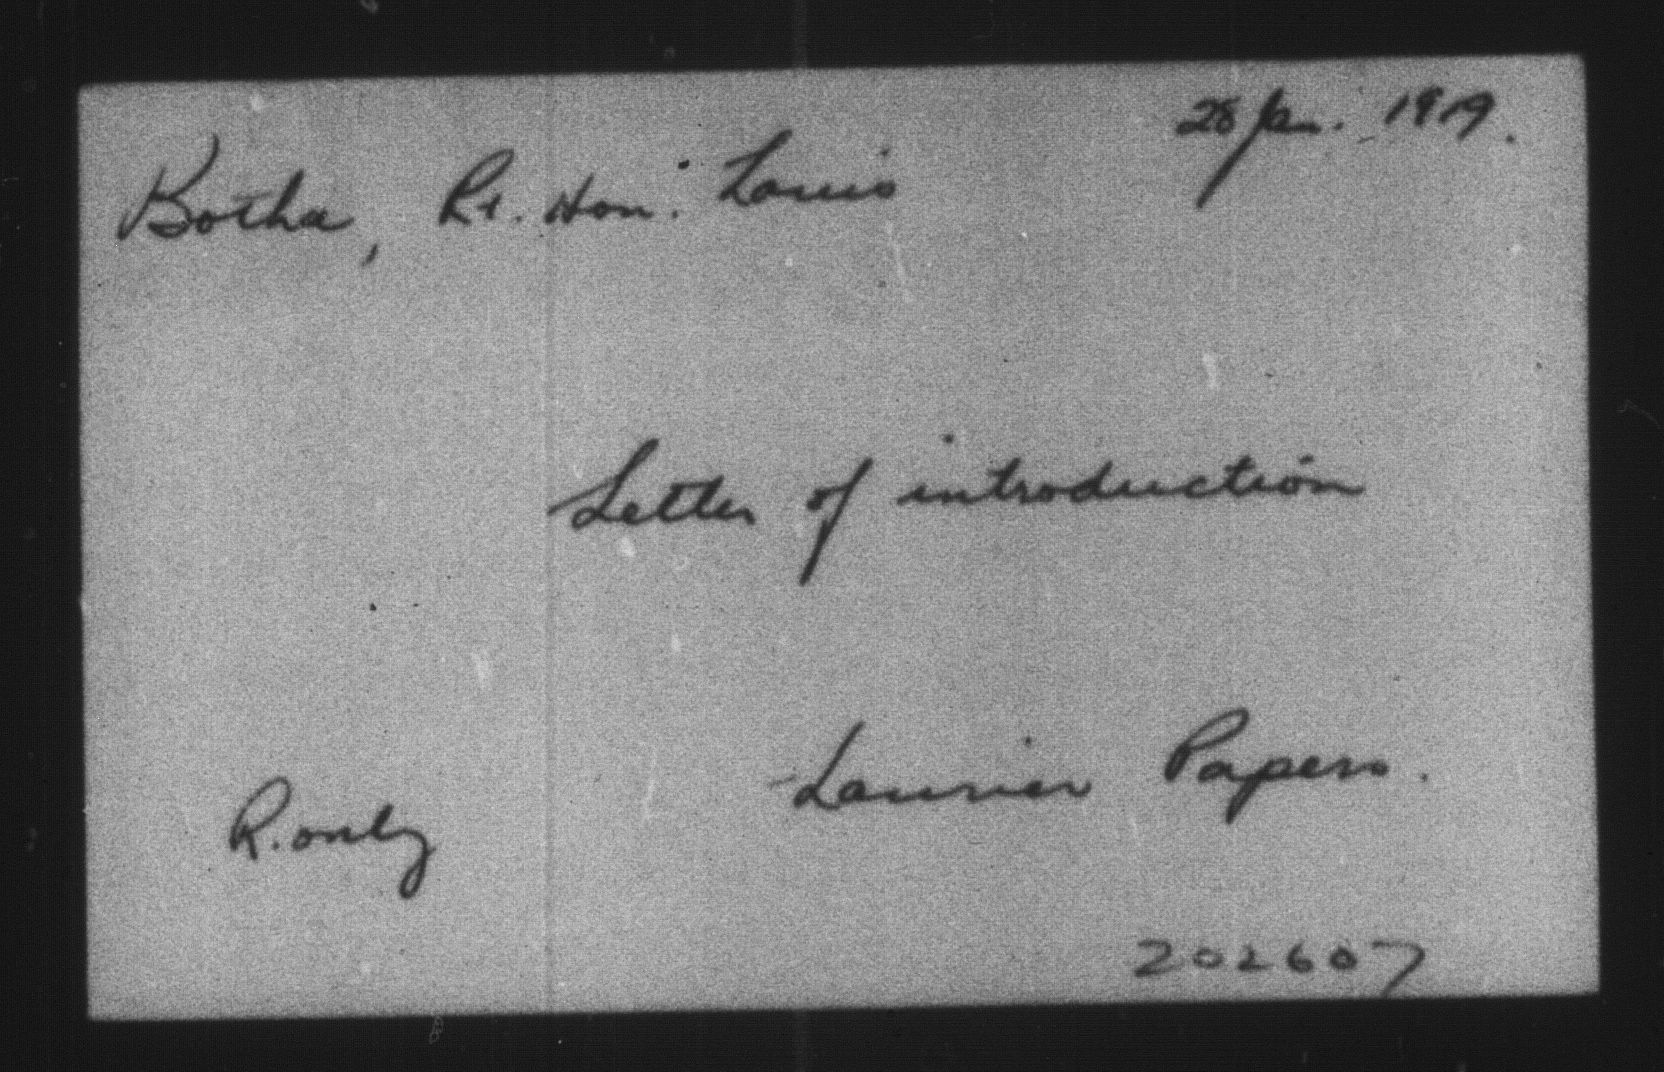 28 Jan. 1919.
Botha, Rt. Hon. Louis
Letter of introduction
Laurier Papers.
R. only
202607